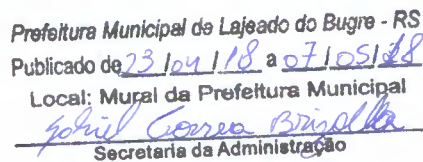 Prefeitura Municipal de Lajeado do Bugre - RS
Publicado de 23 / 04 / 18 a 07 / 05 / 18
Local: Mural da Prefeitura Municipal
Gabriel Correa Brizolla
Secretaria da Administração